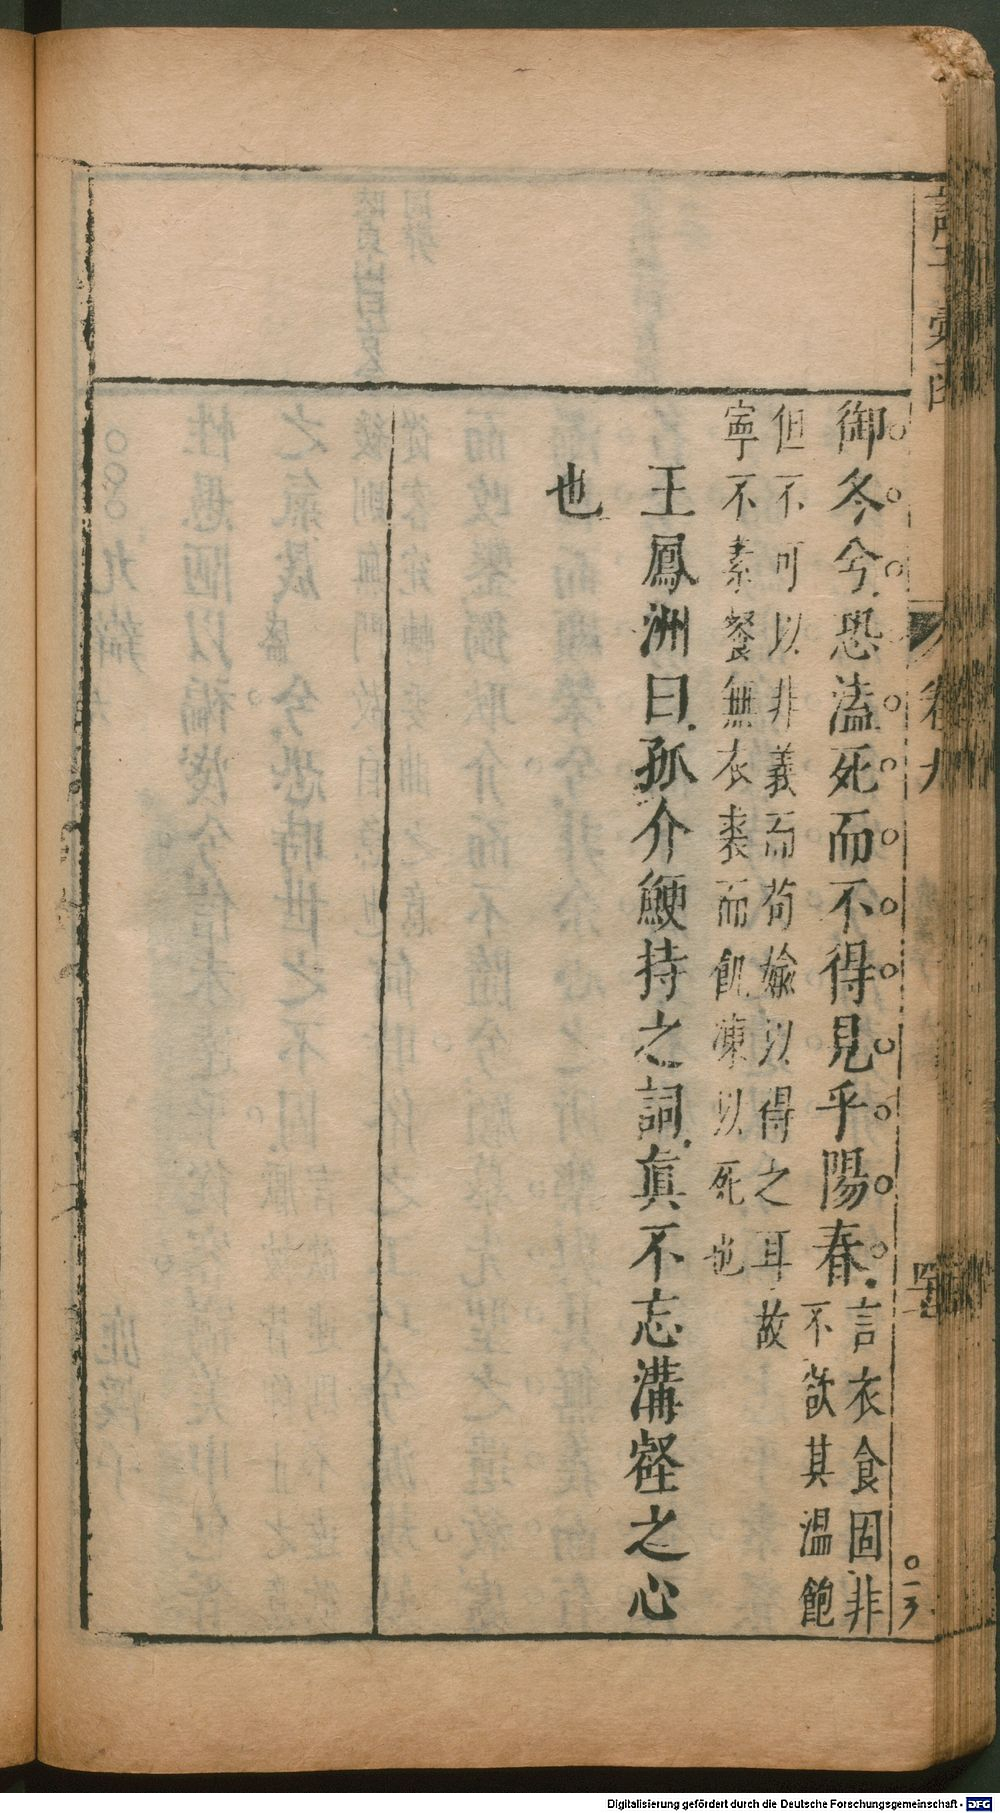 諸子彙函
卷九
御冬兮恐溘死而不得見乎陽春言衣食固非
不欲其温飽
但不可以非義而苟媮以得之耳故
寧不素餐無衣裘而飢凍以死也
王鳳洲曰孤介鯁持之詞眞不忘溝壑之心
也
Digitalisierung gefördert durch die Deutsche Forschungsgemeinschaft - DFG